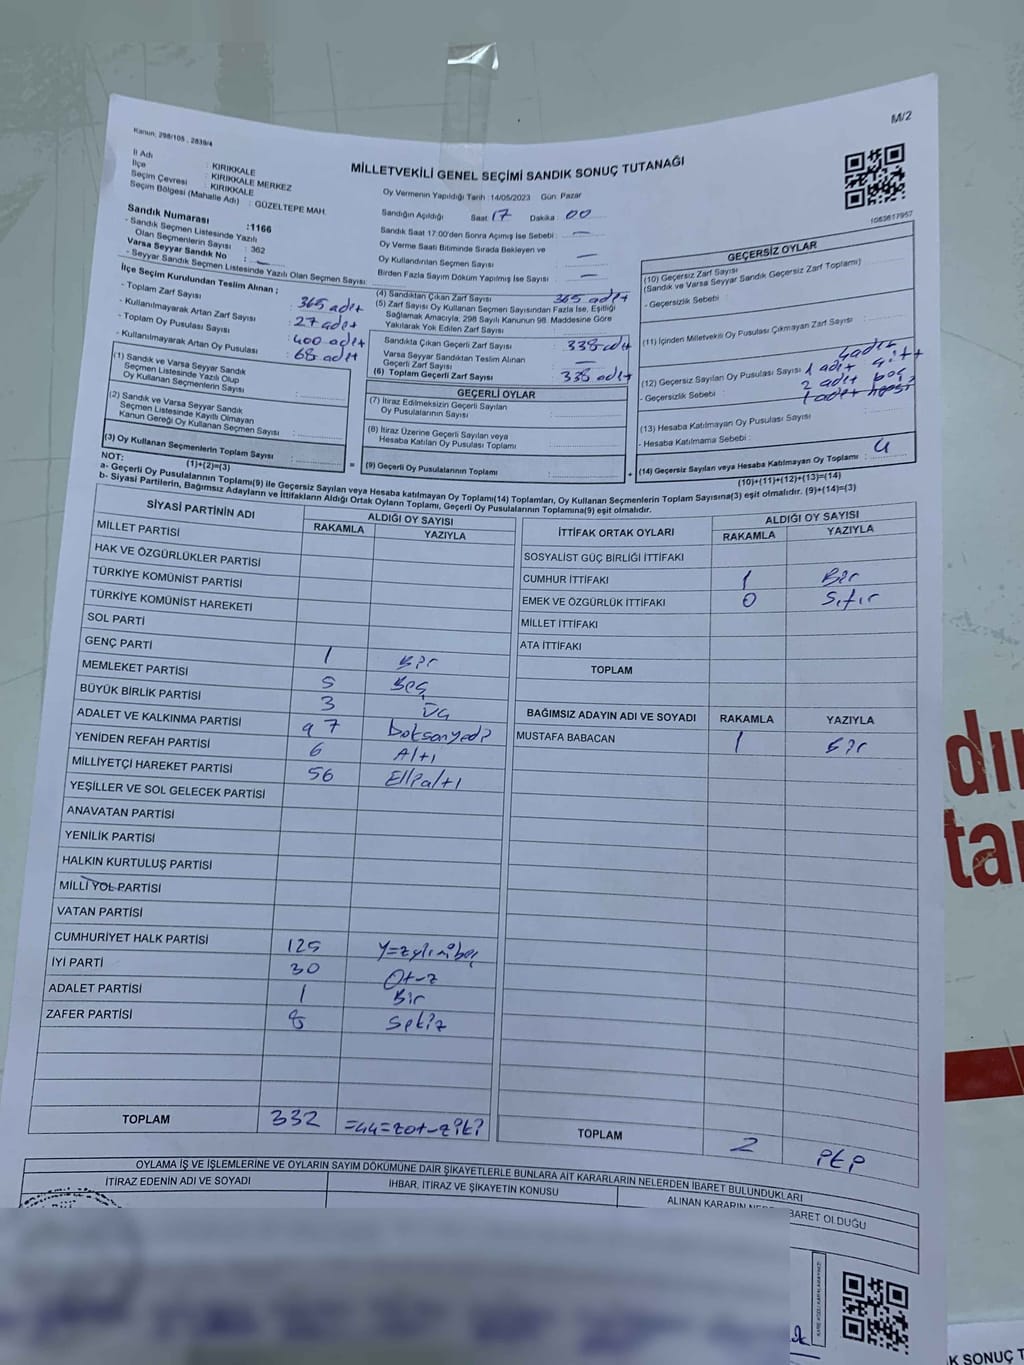 M/2
Kanun; 298/105 , 2839/4
MİLLETVEKİLİ GENEL SEÇİMİ SANDIK SONUÇ TUTANAĞI
1083617957
İl Adı : KIRIKKALE
İlçe : KIRIKKALE MERKEZ
Seçim Çevresi : KIRIKKALE
Seçim Bölgesi (Mahalle Adı) : GÜZELTEPE MAH.
Sandık Numarası :1166
- Sandık Seçmen Listesinde Yazılı
Olan Seçmenlerin Sayısı : 362
Varsa Seyyar Sandık No : —
- Seyyar Sandık Seçmen Listesinde Yazılı Olan Seçmen Sayısı:
İlçe Seçim Kurulundan Teslim Alınan ;
- Toplam Zarf Sayısı : 365 adet
- Kullanılmayarak Artan Zarf Sayısı : 27 adet
- Toplam Oy Pusulası Sayısı : 400 adet
- Kullanılmayarak Artan Oy Pusulası : 68 adet
(1) Sandık ve Varsa Seyyar Sandık
Seçmen Listesinde Yazılı Olup
Oy Kullanan Seçmenlerin Sayısı :
(2) Sandık ve Varsa Seyyar Sandık
Seçmen Listesinde Kayıtlı Olmayan
Kanun Gereği Oy Kullanan Seçmen Sayısı :
(3) Oy Kullanan Seçmenlerin Toplam Sayısı :
(1)+(2)=(3)
Oy Vermenin Yapıldığı Tarih :14/05/2023 Gün: Pazar
Sandığın Açıldığı Saat :17 Dakika : 00
Sandık Saat 17:00'den Sonra Açımış İse Sebebi : —
Oy Verme Saati Bitiminde Sırada Bekleyen ve
Oy Kullandırılan Seçmen Sayısı : —
Birden Fazla Sayım Döküm Yapılmış İse Sayısı : —
(4) Sandıktan Çıkan Zarf Sayısı : 365 adet
(5) Zarf Sayısı Oy Kullanan Seçmen Sayısından Fazla İse, Eşitliği
Sağlamak Amacıyla; 298 Sayılı Kanunun 98. Maddesine Göre
Yakılarak Yok Edilen Zarf Sayısı :
Sandıkta Çıkan Geçerli Zarf Sayısı : 338 adet
Varsa Seyyar Sandıktan Teslim Alınan
Geçerli Zarf Sayısı : —
(6) Toplam Geçerli Zarf Sayısı : 338 adet
GEÇERLİ OYLAR
(7) İtiraz Edilmeksizin Geçerli Sayılan
Oy Pusulalarının Sayısı :
(8) İtiraz Üzerine Geçerli Sayılan veya
Hesaba Katılan Oy Pusulası Toplamı :
= (9) Geçerli Oy Pusulalarının Toplamı :
GEÇERSİZ OYLAR
(10) Geçersiz Zarf Sayısı
(Sandık ve Varsa Seyyar Sandık Geçersiz Zarf Toplamı)
- Geçersizlik Sebebi :
(11) İçinden Milletvekili Oy Pusulası Çıkmayan Zarf Sayısı :
(12) Geçersiz Sayılan Oy Pusulası Sayısı : 4 adet
- Geçersizlik Sebebi : 1 adet
2 adet boş
1 adet
(13) Hesaba Katılmayan Oy Pusulası Sayısı
- Hesaba Katılmama Sebebi :
+ (14) Geçersiz Sayılan veya Hesaba Katılmayan Oy Toplamı : 4
(10)+(11)+(12)+(13)=(14)
NOT:
a- Geçerli Oy Pusulalarının Toplamı(9) ile Geçersiz Sayılan veya Hesaba katılmayan Oy Toplamı(14) Toplamları, Oy Kullanan Seçmenlerin Toplam Sayısına(3) eşit olmalıdır. (9)+(14)=(3)
b- Siyasi Partilerin, Bağımsız Adayların ve İttifakların Aldığı Ortak Oyların Toplamı, Geçerli Oy Pusulalarının Toplamına(9) eşit olmalıdır.
SİYASİ PARTİNİN ADI ALDIĞI OY SAYISI
RAKAMLA YAZIYLA
MİLLET PARTİSİ
HAK VE ÖZGÜRLÜKLER PARTİSİ
TÜRKİYE KOMÜNİST PARTİSİ
TÜRKİYE KOMÜNİST HAREKETİ
SOL PARTİ
GENÇ PARTİ 1 Bir
MEMLEKET PARTİSİ 5 Beş
BÜYÜK BİRLİK PARTİSİ 3 Üç
ADALET VE KALKINMA PARTİSİ 97 Doksanyedi
YENİDEN REFAH PARTİSİ 6 Altı
MİLLİYETÇİ HAREKET PARTİSİ 56 Ellialtı
YEŞİLLER VE SOL GELECEK PARTİSİ
ANAVATAN PARTİSİ
YENİLİK PARTİSİ
HALKIN KURTULUŞ PARTİSİ
MİLLİ YOL PARTİSİ
VATAN PARTİSİ
CUMHURİYET HALK PARTİSİ 125 Yüzyirmibeş
İYİ PARTİ 30 Otuz
ADALET PARTİSİ 1 Bir
ZAFER PARTİSİ 8 Sekiz
TOPLAM 332 =üçyüzotuziki
İTTİFAK ORTAK OYLARI ALDIĞI OY SAYISI
RAKAMLA YAZIYLA
SOSYALİST GÜÇ BİRLİĞİ İTTİFAKI
CUMHUR İTTİFAKI 1 Bir
EMEK VE ÖZGÜRLÜK İTTİFAKI 0 Sıfır
MİLLET İTTİFAKI
ATA İTTİFAKI
TOPLAM
BAĞIMSIZ ADAYIN ADI VE SOYADI RAKAMLA YAZIYLA
MUSTAFA BABACAN 1 Bir
TOPLAM 2 iki
OYLAMA İŞ VE İŞLEMLERİNE VE OYLARIN SAYIM DÖKÜMÜNE DAİR ŞİKAYETLERLE BUNLARA AİT KARARLARIN NELERDEN İBARET BULUNDUKLARI
İTİRAZ EDENİN ADI VE SOYADI İHBAR, İTİRAZ VE ŞİKAYETİN KONUSU ALINAN KARARIN İBARET OLDUĞU
dın
tar
K SONUÇ T